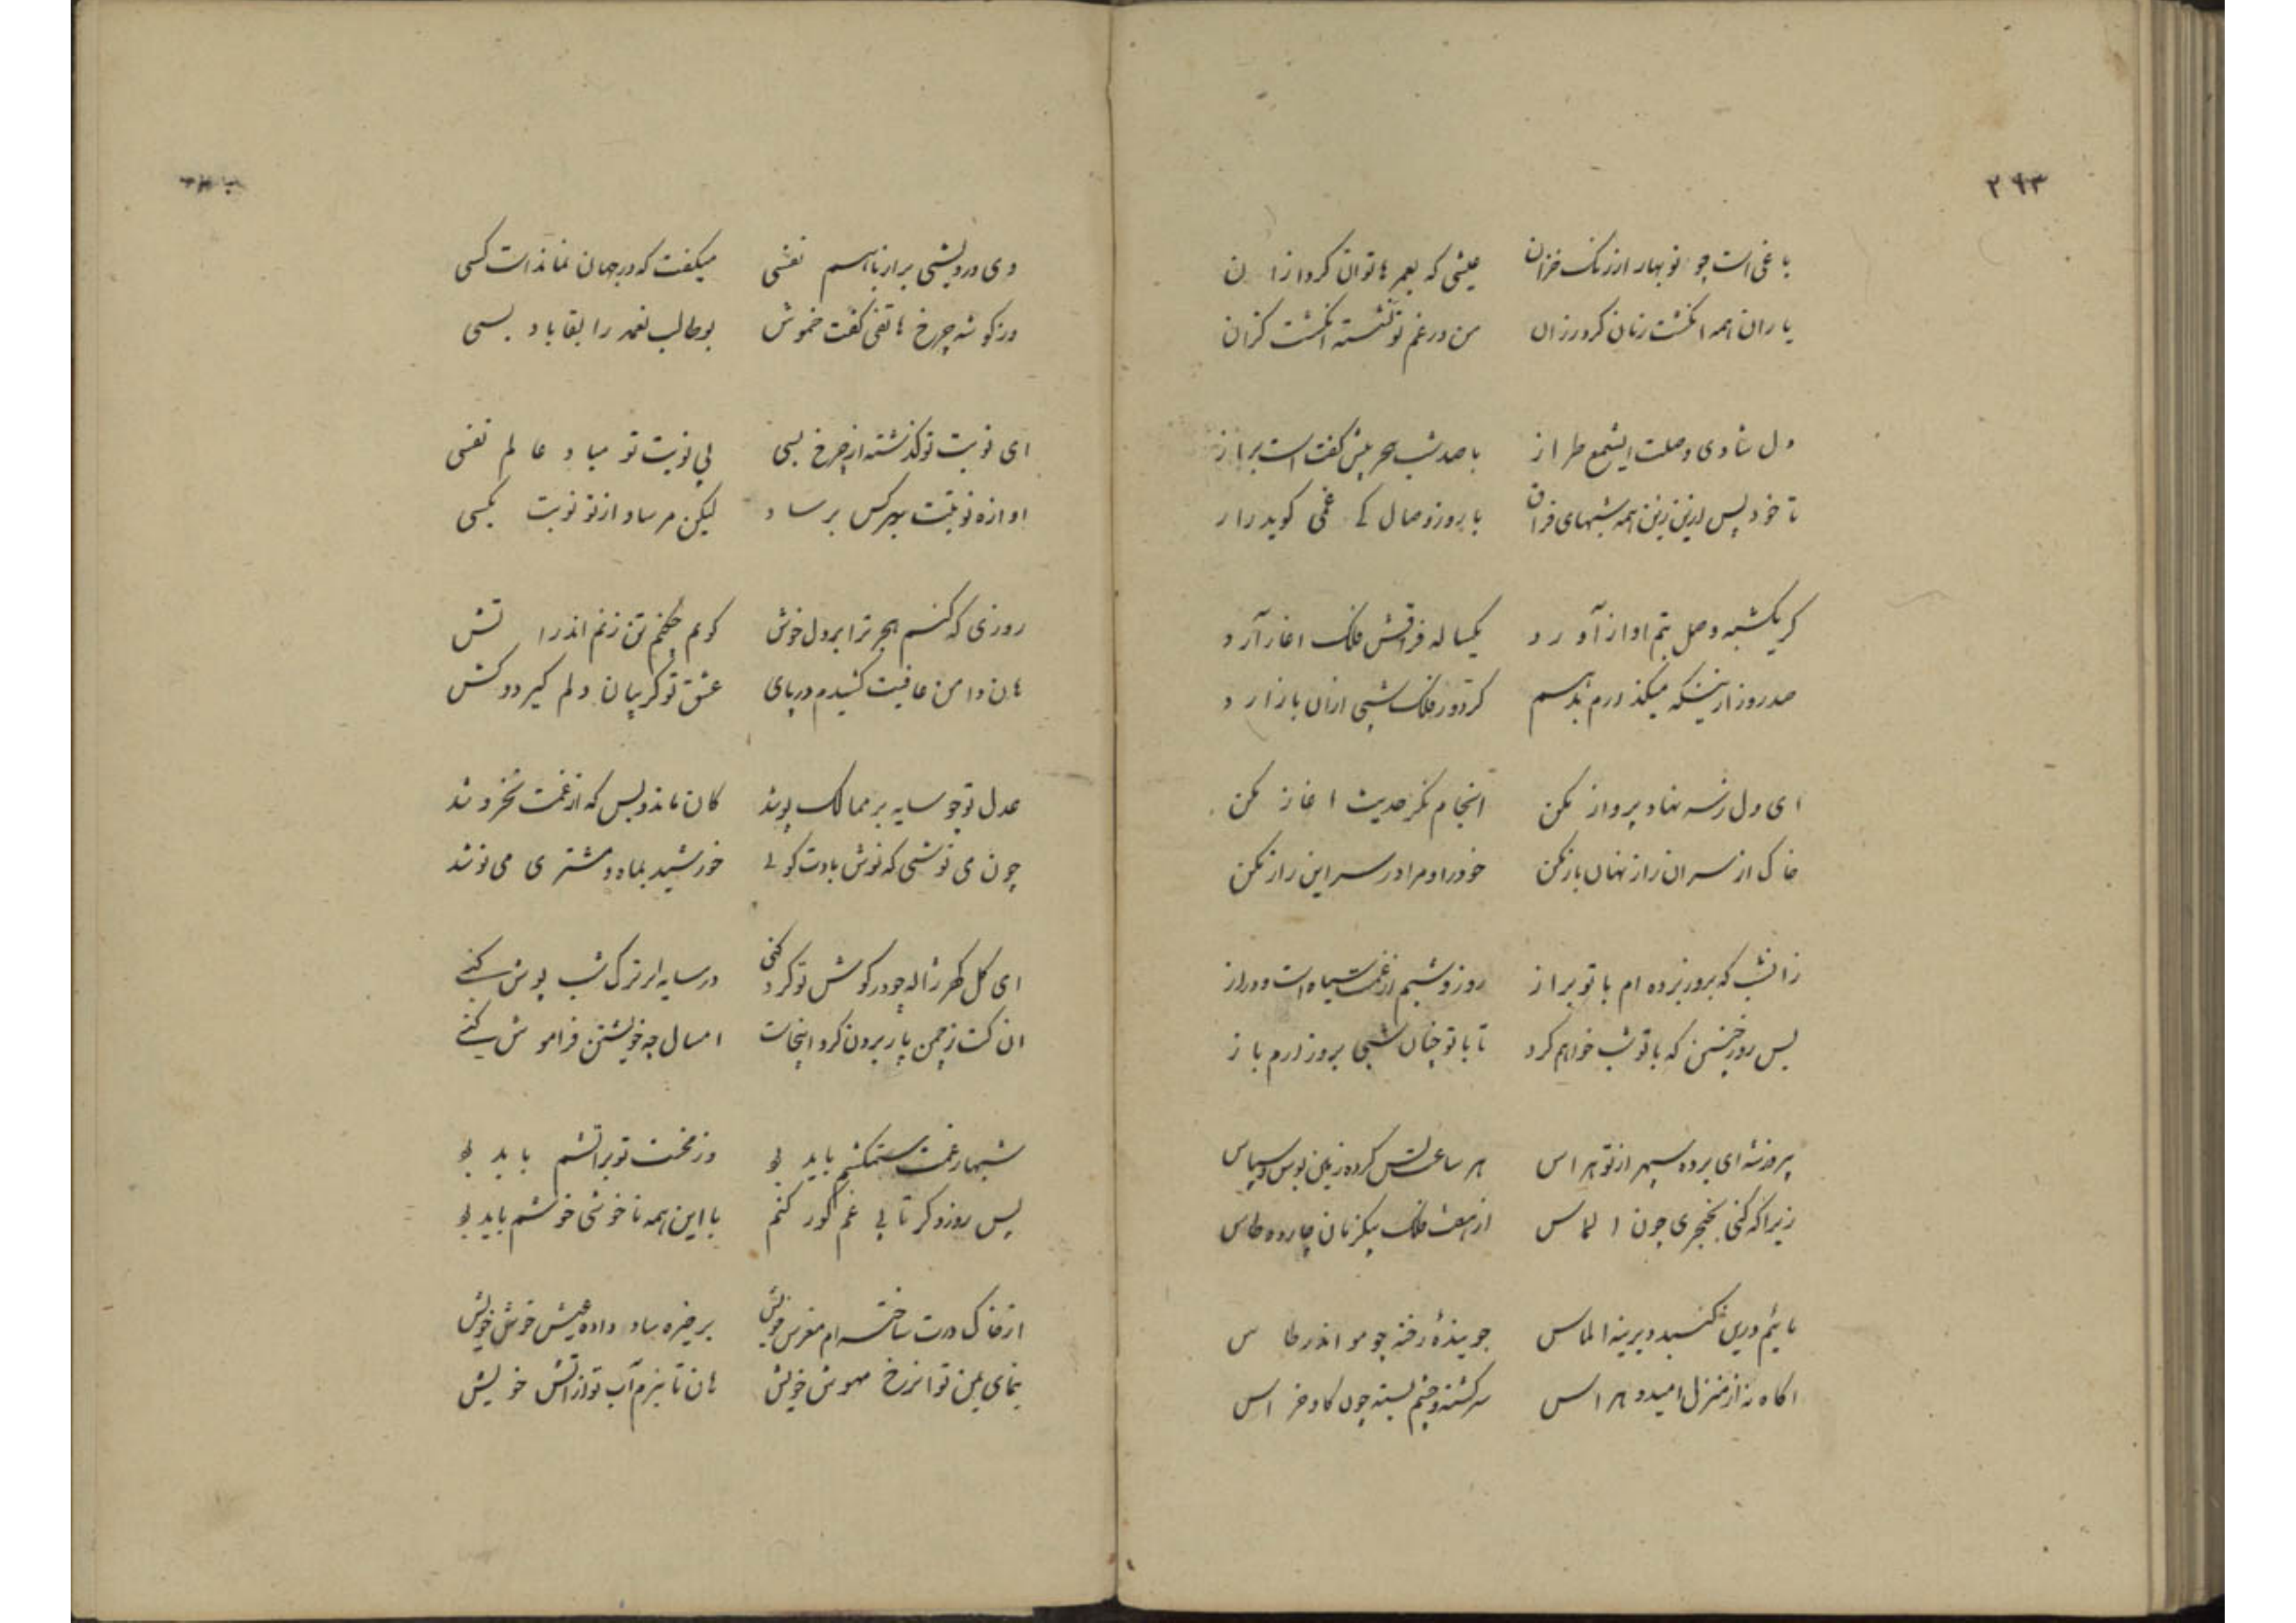 ۲۹۳
باغی است چو نوبهار از رنگ خزان عیشی که بعمرها توان کرد از ان
یاران همه انگشت زنان کرد رزان من در غم تو نشسته انگشت گزان
دل شادی وصلت ایشمع طراز با صد شب هجر پیش گفت است براز
تا خود پس ازین زین همه شبهای فراق با روز وصال کی غمی گوید راز
گر یکشبه وصل بتم اواز آورد یکساله فراقش فلک اغاز آرد
صد روز ازینکه میگذارم بدهم گر دور فلک شبی ازان باز ارد
ای دل ز نهاد پرواز مکن انجام نگر حدیث اغاز مکن
خاک از سر ان راز نهان باز مکن خود را و مرا در سر این راز مکن
زانشب که بروز برده ام با تو براز روز و شبم از غمت سیاه است و دراز
بس روز چنین که با تو شب خواهم کرد تا با تو چنان شبی بروز ارم باز
پیروز شه ای برده سپهر از تو هراس هر ساعتش کرده زمین بوس و سپاس
زیرا که کنی بخنجری چون الماس از هفت فلک بیکزمان چارده طاس
مائیم درین گنبد دیرینه الماس جوینده رخنه چو مور اندر طاس
اگاه نه از منزل امید و هراس سرگشته و چشم بسته چون گاو خراس
دی درویشی براز با هم نفسی میگفت که در جهان نماند است کسی
در گوشه چرخ هاتفی گفت خموش بوطالب نعمه را بقا باد بسی
ای نوبت تو گذشته از چرخ بسی بی نوبت تو مباد عالم نفسی
اوازه نوبتت بهر کس برساد لیکن مرساد از تو نوبت بکسی
روزی که کنم هجر ترا بر دل خوش گویم چکنم تن زنم اندر اتش
هان دامن عافیت کشیدم در پای عشق تو گریبان دلم گیرد و کش
عدل تو چو سایه بر ممالک پوشد کان ماند و بس که از غمت نخروشد
چون می نوشی که نوش بادت گوئی خورشید بماه و مشتری می نوشد
ای گل گهر ژاله چو در گوش کنی در سایه ابر ترک شب پوش کنی
ان کت ز چمن پار برون کرد اینجاست امسال چه خویشتن فراموش کنی
شبها ز غمت ستمکشم باید بو وز محنت تو بر اتشم باید بو
پس روز دگر تا پی غم کور کنم با این همه ناخوشی خوشم باید بو
از خاک درت ساخته ام مفرش خویش بر خیره بباد داده عیش خوش خویش
بنمای بمن تو ان رخ مهوش خویش هان تا نبرم آب تو از اتش خویش